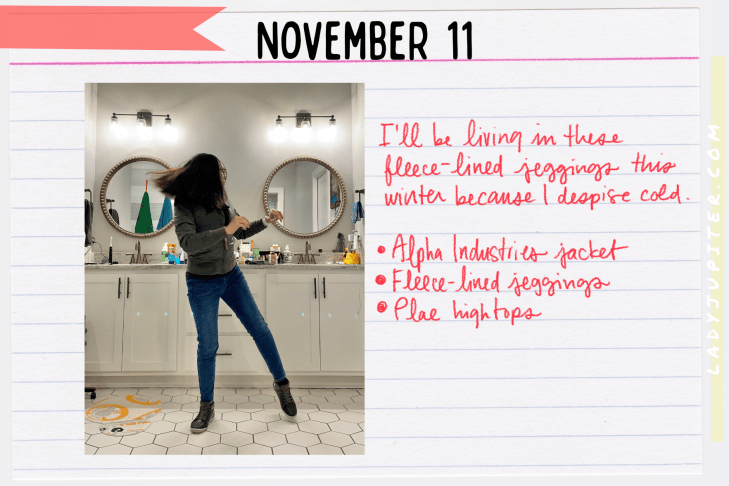 NOVEMBER 11
I'll be living in these
fleece-lined jeggings this
winter because I despise cold.
• Alpha Industries jacket
• Fleece-lined jeggings
• Plae hightops
LADYJUPITER.COM